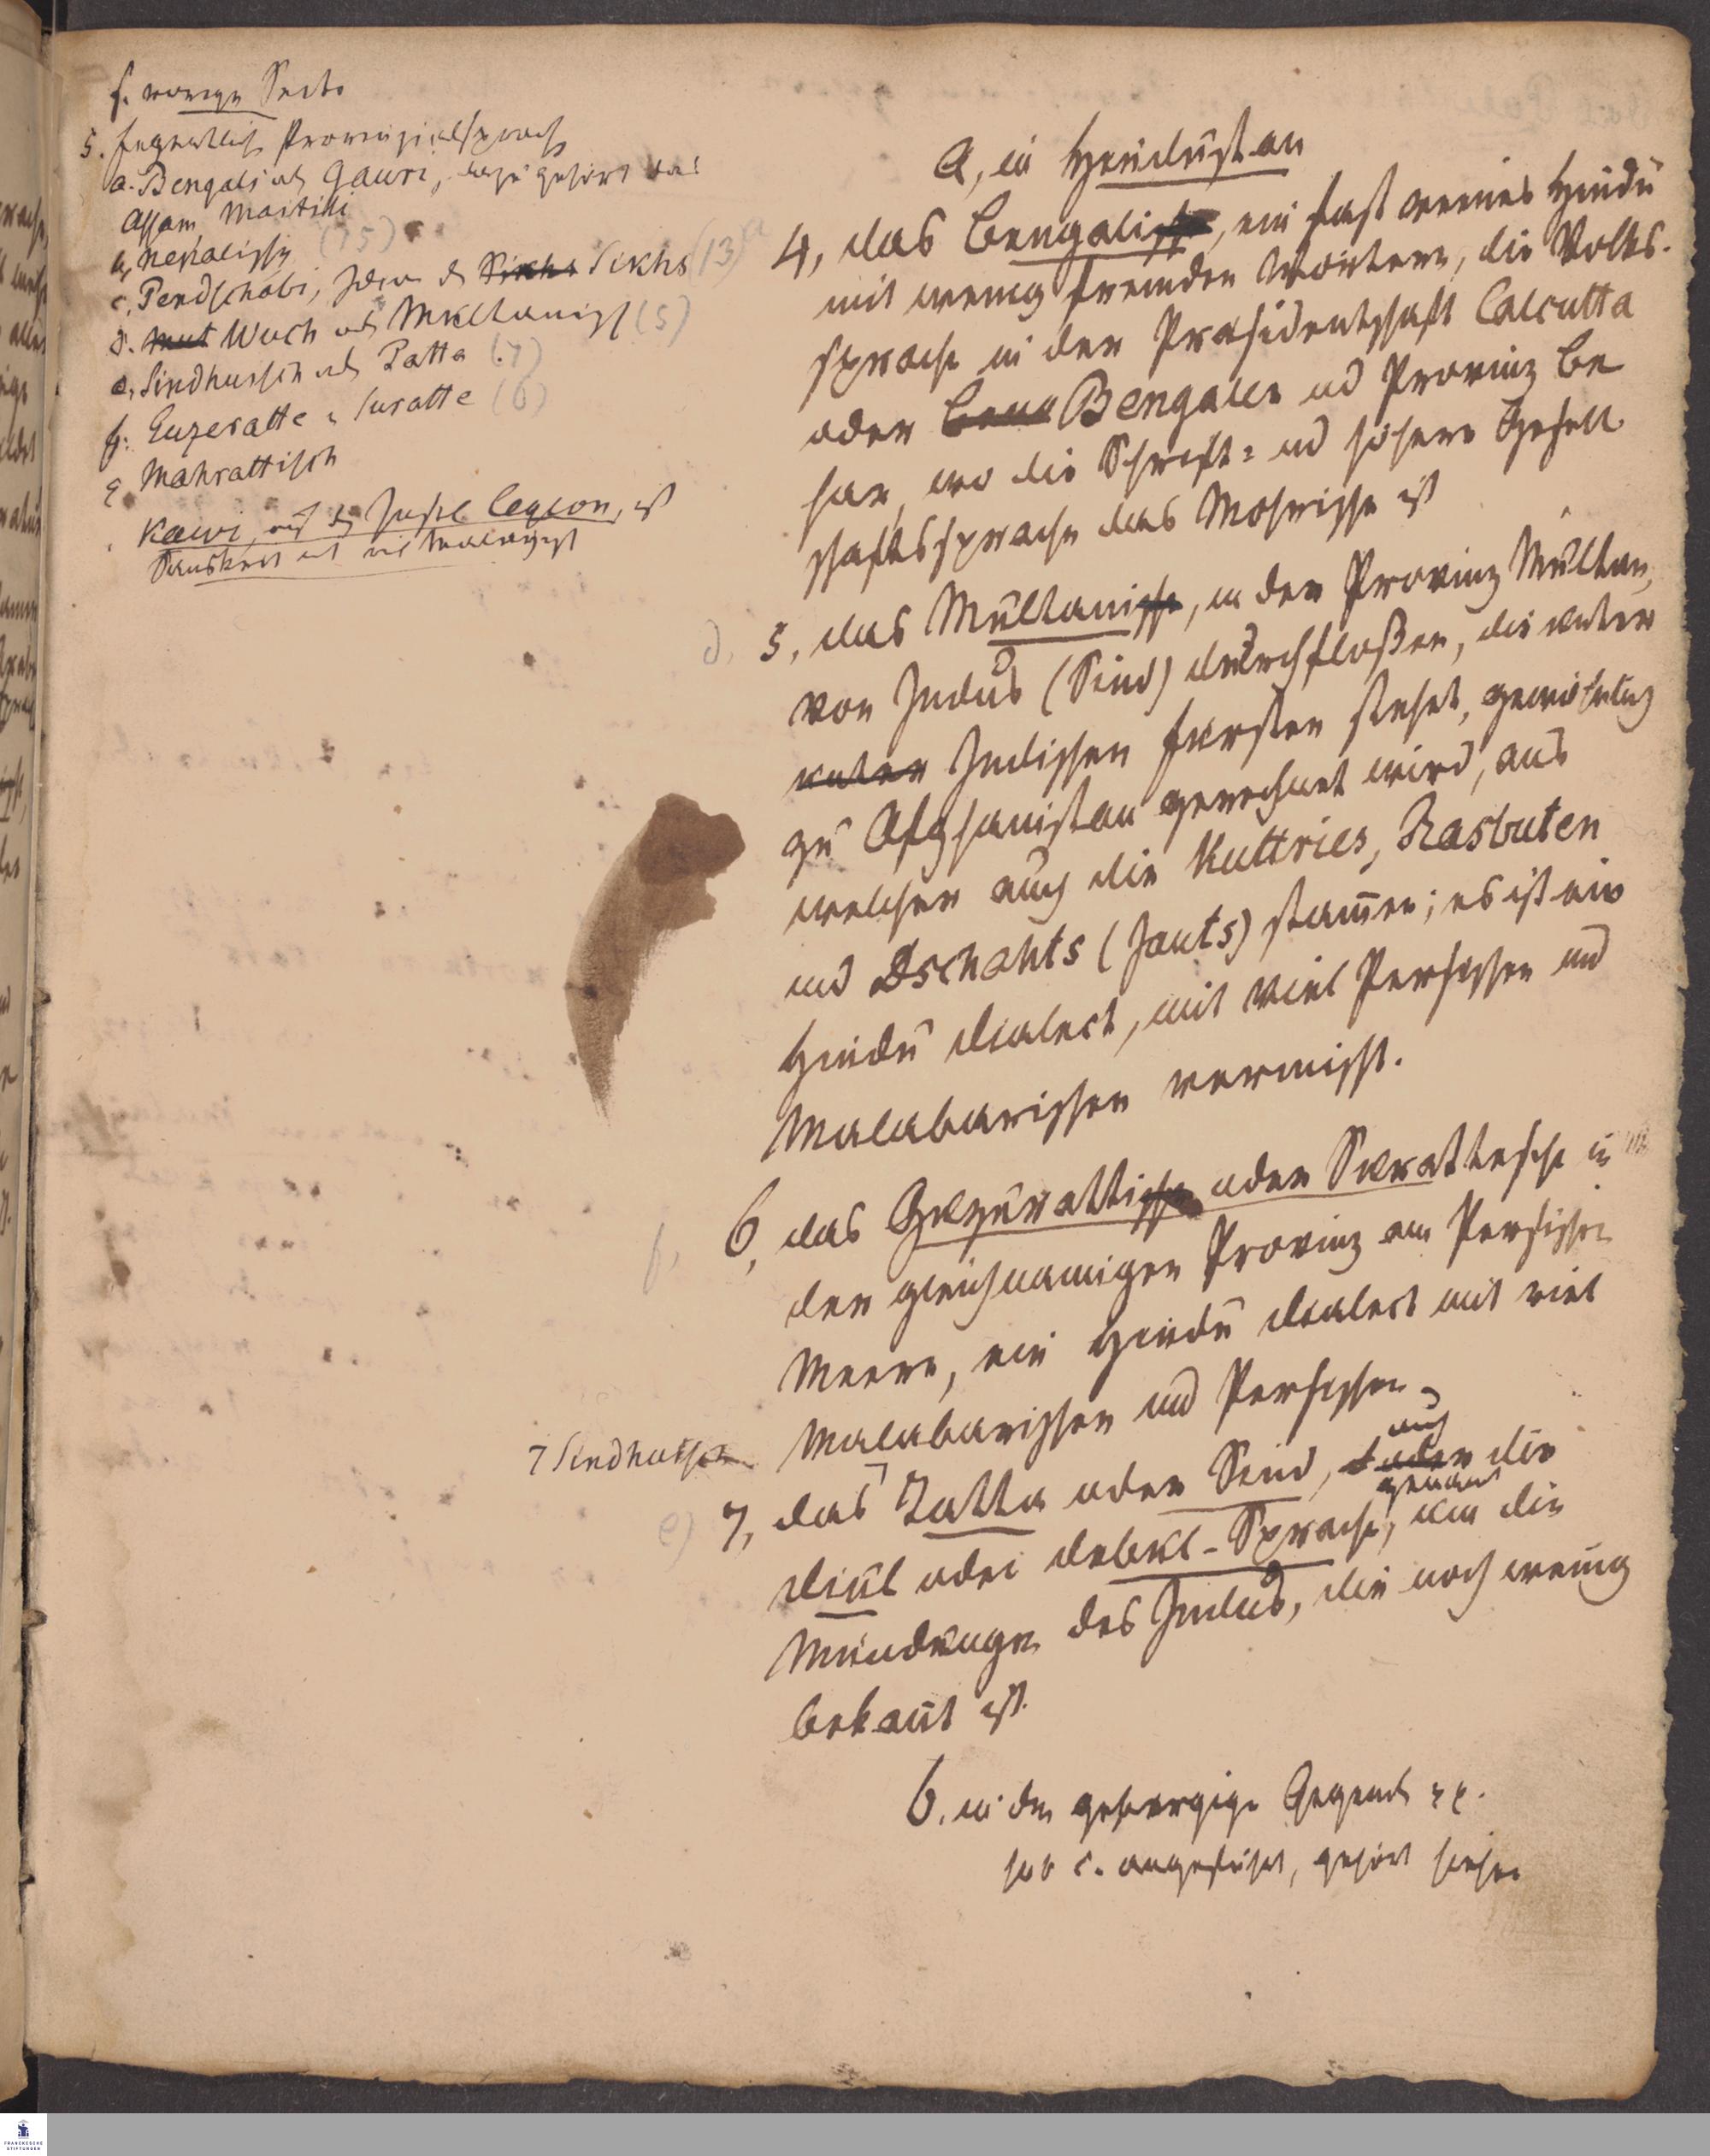 s. vorige Seite
5. Jugendliche Provinzialsprach
a. Bengali od Gauri, dazu gehört das
Assam, Maitili
b, Nepalische (15)
c, Pendschabi, der Sikhs (13)
d. Wuch od Multanisch (5)
e, Sindhuisch od Tatta (7)
f. Guzeratte = Suratte (6)
g Mahrattisch
Kawi, auf der Insel Ceylon, ist
Sanskrit mit viel Malayisch
a, in Hindustan
4, das Bengalische, ein fast reines Hindu
mit wenig fremden Wörtern, die Volks-
sprache in der Präsidentschaft Calcutta
oder Bengalen und Provinz Be
har, wo die Schrift- und höhere Gesell-
schaftssprache das Mohrische ist
d. 5, das Multanische, in der Provinz Multan,
vom Indus (Sind) durchflossen, die unter
unter Indischen Fürsten stehet, gewöhnlich
zu Afghanistan gerechnet wird, aus
welcher auch die Kuttries, Rasbuten
und Dschahts (Jauts) stam̄en; es ist ein
Hindu Dialect, mit viel Persischen und
Malabarischen vermischt.
f, 6, das Guzurattische oder Surattische in
der gleichnamigen Provinz am Persischen
Meere, ein Hindu Dialect mit viel
Malabarischen und Persischen
7 Sindhuisch
e) 7, das Tatta oder Sind, oder die
auch
genannt
Diul oder Debul-Sprache, um die
Mündungen des Indus, die noch wenig
bekan̄t ist.
b. in den gebirgigen Gegenden
sub c. angeführt, gehört hieher
FRANCKESCHE
STIFTUNGEN